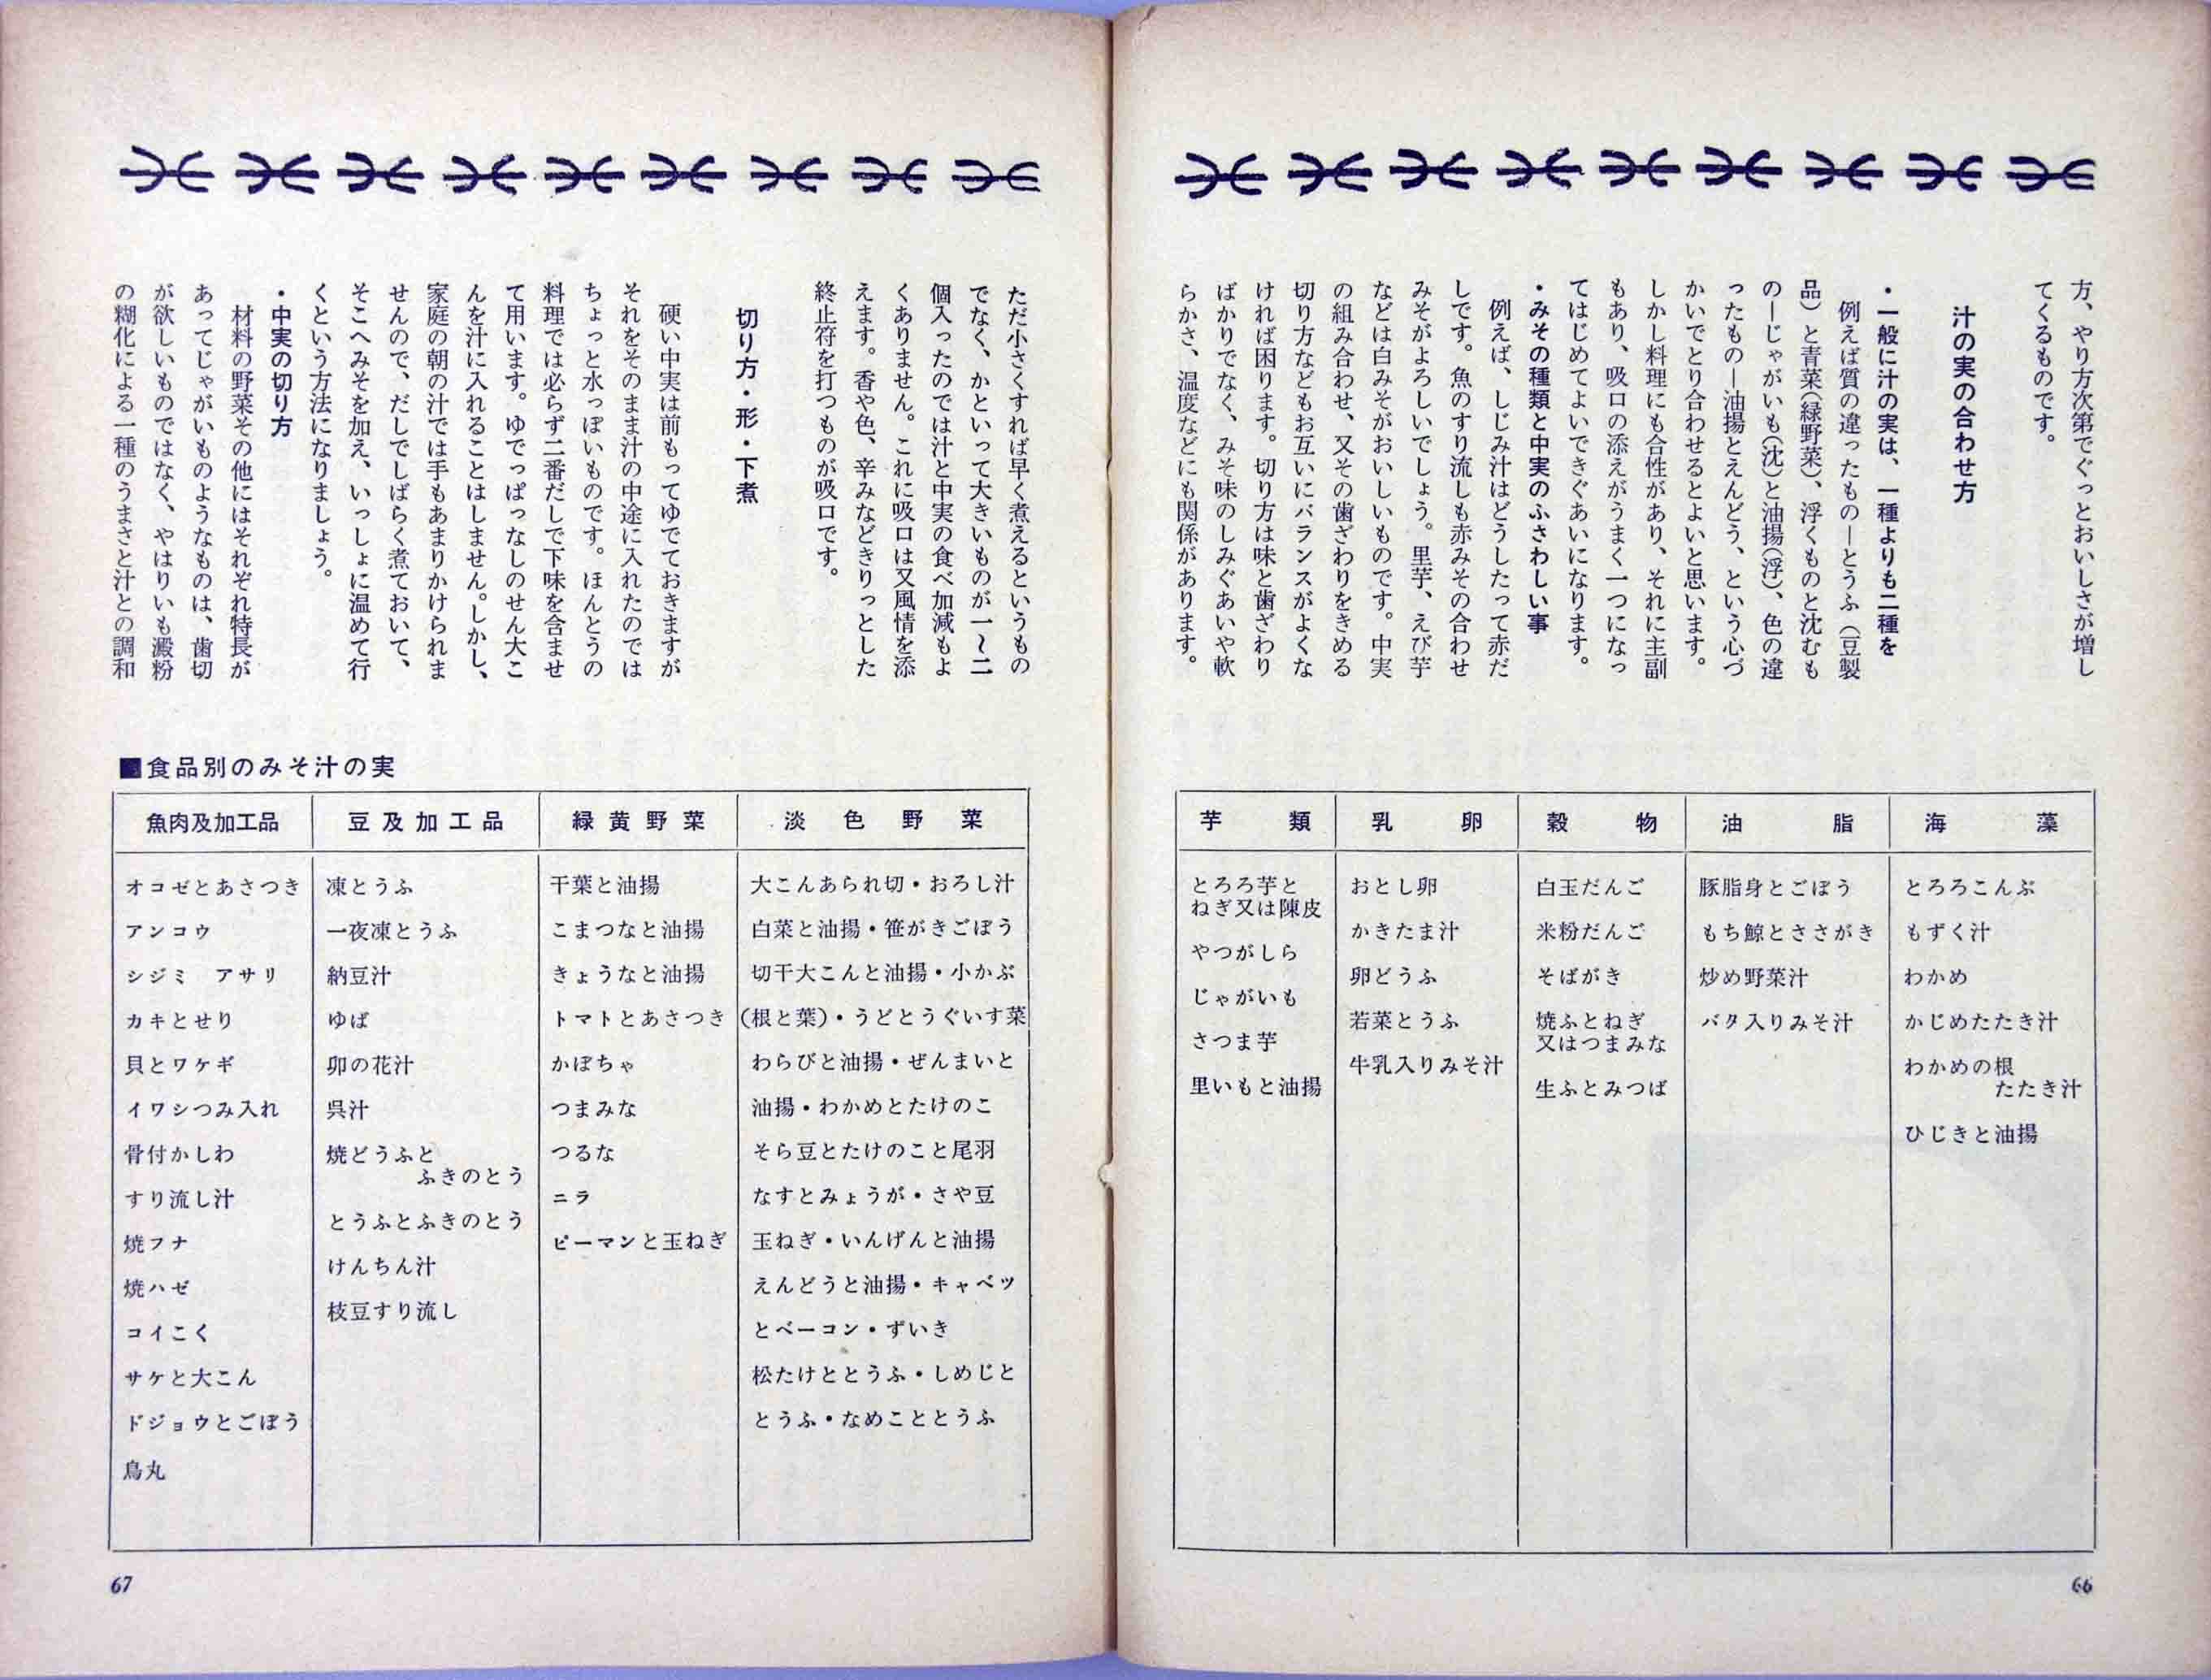 方、やり方次第でぐっとおいしさが増し
てくるものです。
汁の実の合わせ方
・一般に汁の実は、一種よりも二種を
例えば質の違ったもの―とうふ（豆製
品）と青菜（緑野菜）、浮くものと沈むも
の―じゃがいも（沈）と油揚（浮）、色の違
ったもの―油揚とえんどう、という心づ
かいでとり合わせるとよいと思います。
しかし料理にも合性があり、それに主副
もあり、吸口の添えがうまく一つになっ
てはじめてよいできぐあいになります。
・みその種類と中実のふさわしい事
例えば、しじみ汁はどうしたって赤だ
しです。魚のすり流しも赤みその合わせ
みそがよろしいでしょう。里芋、えび芋
などは白みそがおいしいものです。中実
の組み合わせ、又その歯ざわりをきめる
切り方などもお互いにバランスがよくな
ければ困ります。切り方は味と歯ざわり
ばかりでなく、みそ味のしみぐあいや軟
らかさ、温度などにも関係があります。
芋類
とろろ芋と
ねぎ又は陳皮
やつがしら
じゃがいも
さつま芋
里いもと油揚
乳卵
おとし卵
かきたま汁
卵どうふ
若菜とうふ
牛乳入りみそ汁
穀物
白玉だんご
米粉だんご
そばがき
焼ふとねぎ
又はつまみな
生ふとみつば
油脂
豚脂身とごぼう
もち鯨とささがき
炒め野菜汁
バタ入りみそ汁
海藻
とろろこんぶ
もずく汁
わかめ
かじめたたき汁
わかめの根
たたき汁
ひじきと油揚
66
ただ小さくすれば早く煮えるというもの
でなく、かといって大きいものが一〜二
個入ったのでは汁と中実の食べ加減もよ
くありません。これに吸口は又風情を添
えます。香や色、辛みなどきりっとした
終止符を打つものが吸口です。
切り方・形・下煮
硬い中実は前もってゆでておきますが
それをそのまま汁の中途に入れたのでは
ちょっと水っぽいものです。ほんとうの
料理では必らず二番だしで下味を含ませ
て用います。ゆでっぱなしのせん大こ
んを汁に入れることはしません。しかし、
家庭の朝の汁では手もあまりかけられま
せんので、だしでしばらく煮ておいて、
そこへみそを加え、いっしょに温めて行
くという方法になりましょう。
・中実の切り方
材料の野菜その他にはそれぞれ特長が
あってじゃがいものようなものは、歯切
が欲しいものではなく、やはりいも澱粉
の糊化による一種のうまさと汁との調和
■食品別のみそ汁の実
魚肉及加工品
オコゼとあさつき
アンコウ
シジミ　アサリ
カキとせり
貝とワケギ
イワシつみ入れ
骨付かしわ
すり流し汁
焼フナ
焼ハゼ
コイこく
サケと大こん
ドジョウとごぼう
鳥丸
豆及加工品
凍とうふ
一夜凍とうふ
納豆汁
ゆば
卯の花汁
呉汁
焼どうふと
ふきのとう
とうふとふきのとう
けんちん汁
枝豆すり流し
緑黄野菜
干葉と油揚
こまつなと油揚
きょうなと油揚
トマトとあさつき
かぼちゃ
つまみな
つるな
ニラ
ピーマンと玉ねぎ
淡色野菜
大こんあられ切・おろし汁
白菜と油揚・笹がきごぼう
切干大こんと油揚・小かぶ
(根と葉)・うどとうぐいす菜
わらびと油揚・ぜんまいと
油揚・わかめとたけのこ
そら豆とたけのこと尾羽
なすとみょうが・さや豆
玉ねぎ・いんげんと油揚
えんどうと油揚・キャベツ
とベーコン・ずいき
松たけととうふ・しめじと
とうふ・なめこととうふ
67